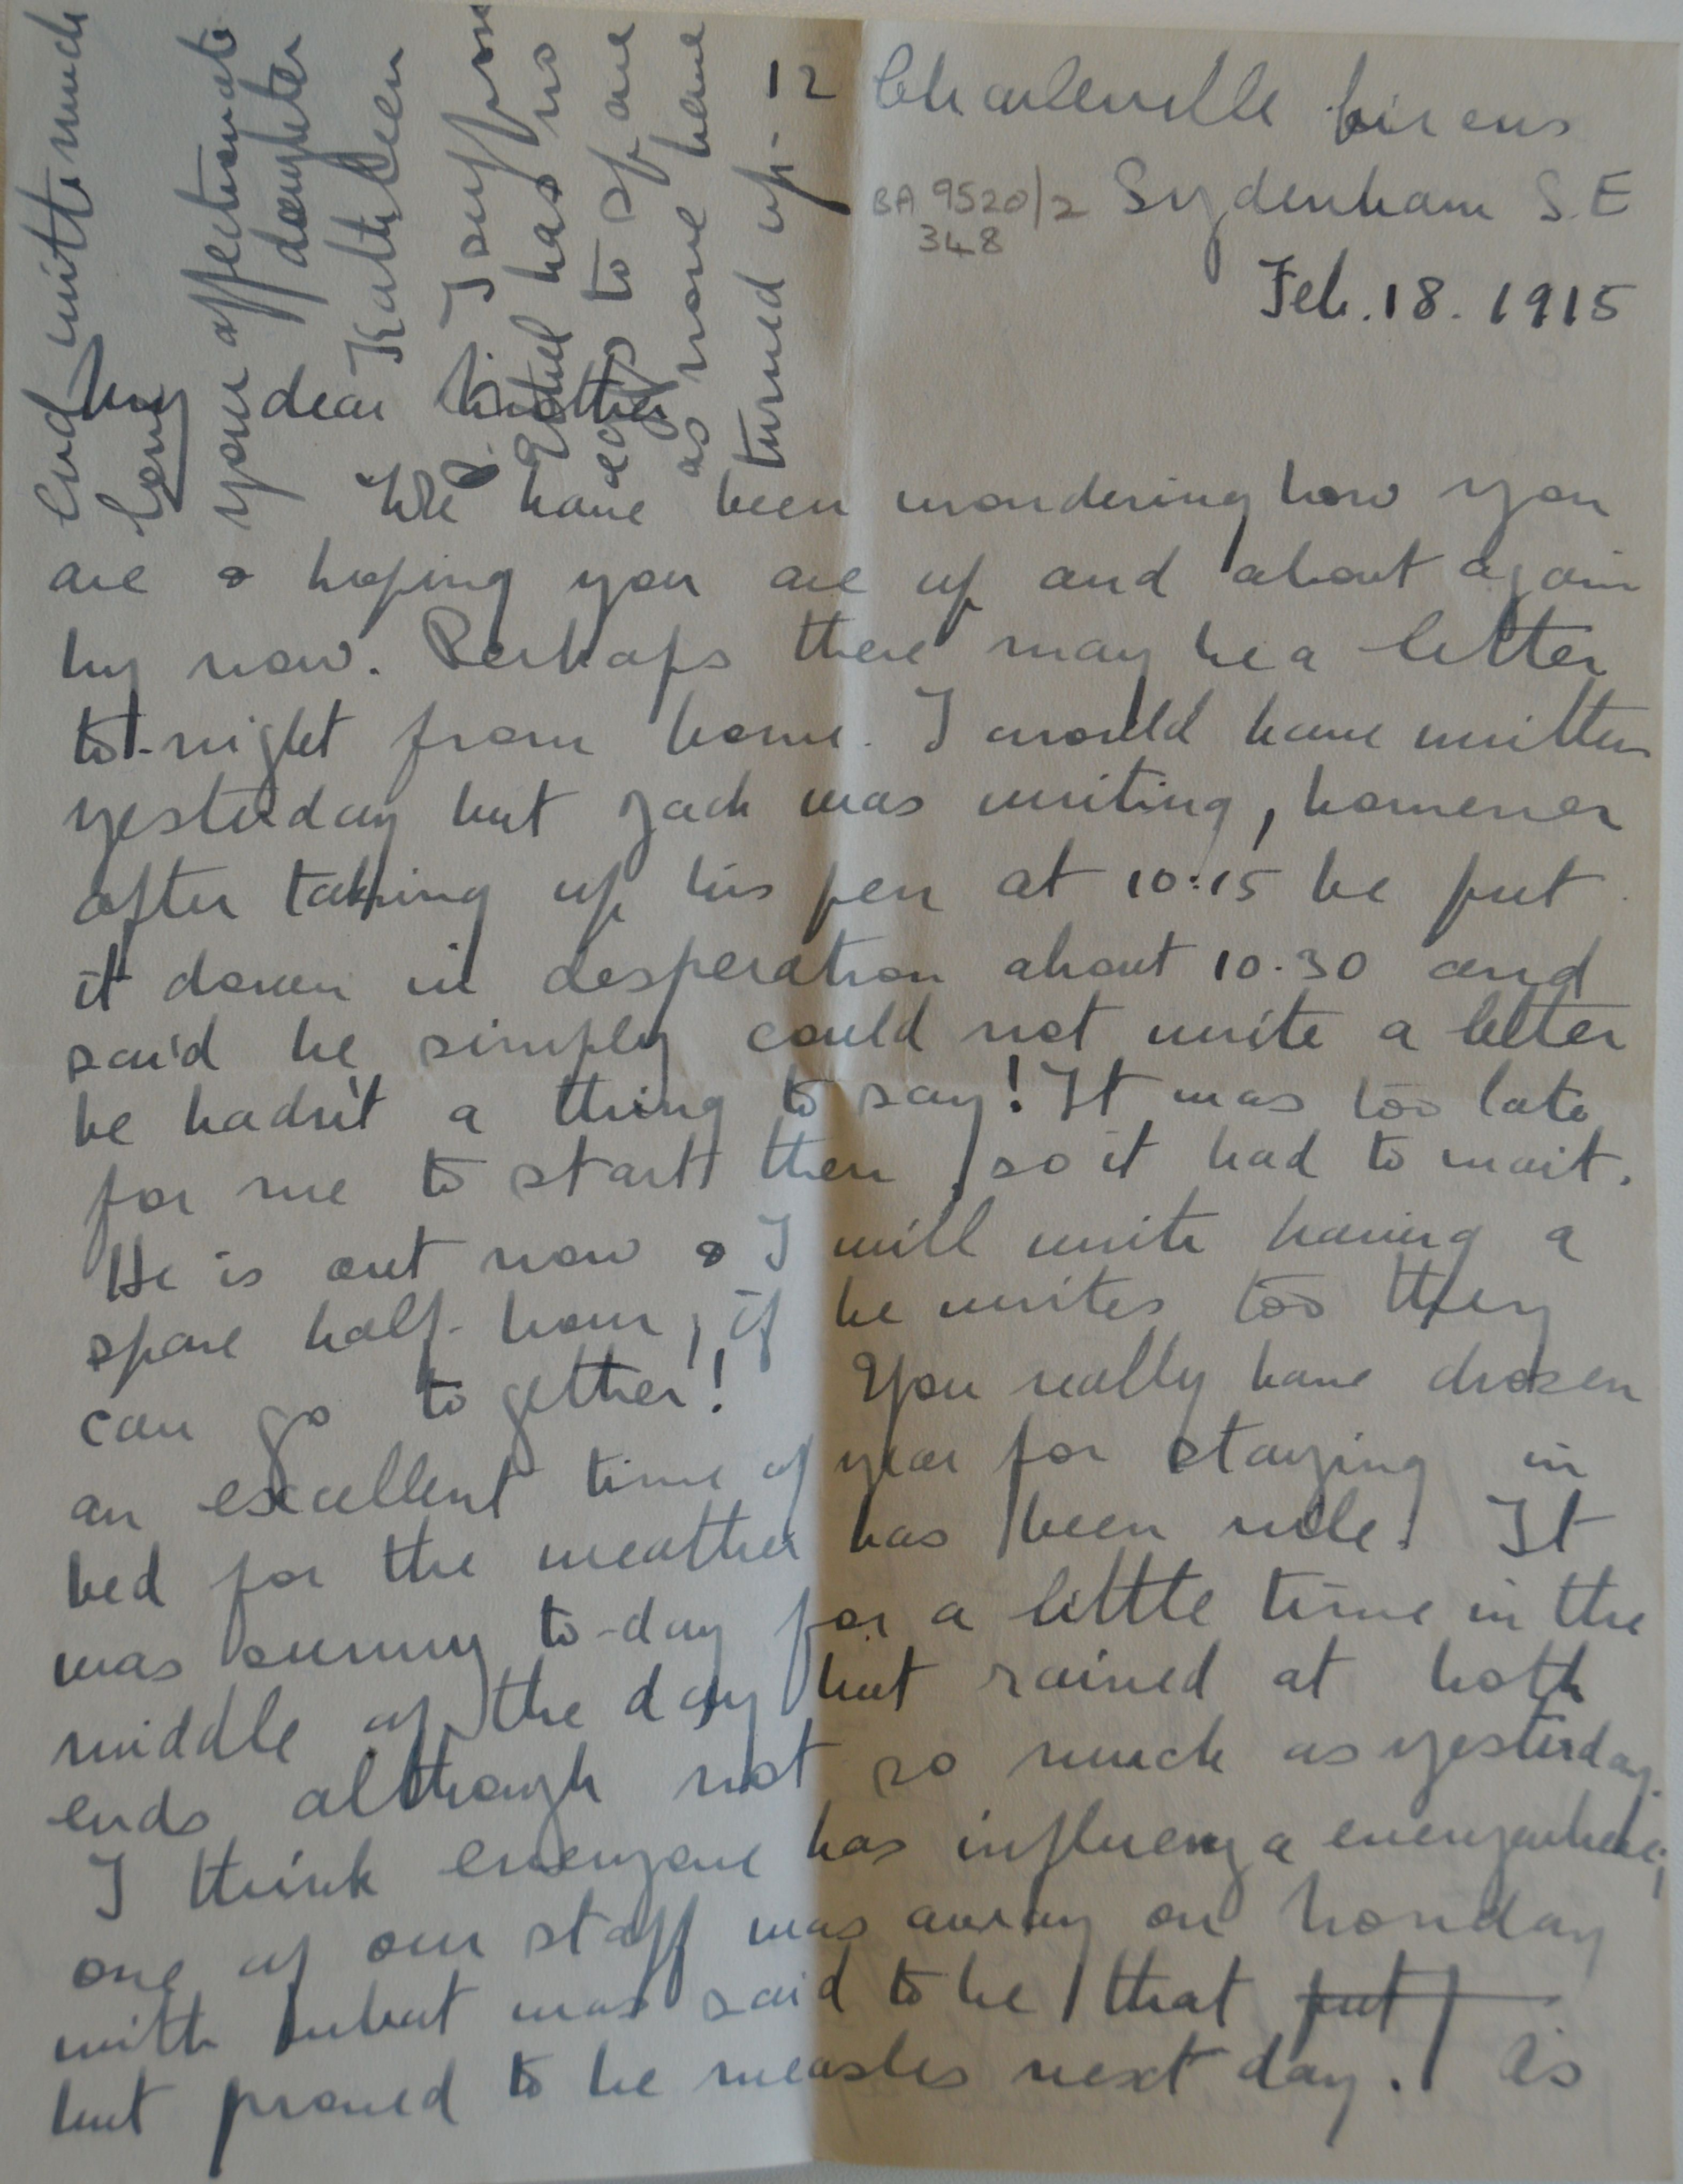 12 Charleville Circus
BA 9520/2 Sydenham S.E
348
Feb. 18. 1915
My dear Mother
We have been wondering how you
are & hoping you are up and about again
by now. Perhaps there may be a letter
to-night from home. I would have written
yesterday but Jack was writing, however
after taking up his pen at 10:15 he put
it down in desperation about 10.30 and
said he simply could not write a letter
he hadn't a thing to say! It was too late
for me to start then, so it had to wait.
He is out now & I will write having a
spare half-hour, if he writes too they
can go together! You really have chosen
an excellent time of year for staying in
bed for the weather has been vile! It
was sunny to-day for a little time in the
middle of the day but rained at both
ends although not so much as yesterday.
I think everyone has influenza everywhere;
one of our staff was away on Monday
with what was said to be that put
but proved to be measles next day. As
End with much
love
your affectionate
daughter
Kathleen
I suppose
Ethel has no
eggs to spare
as none have
turned up.